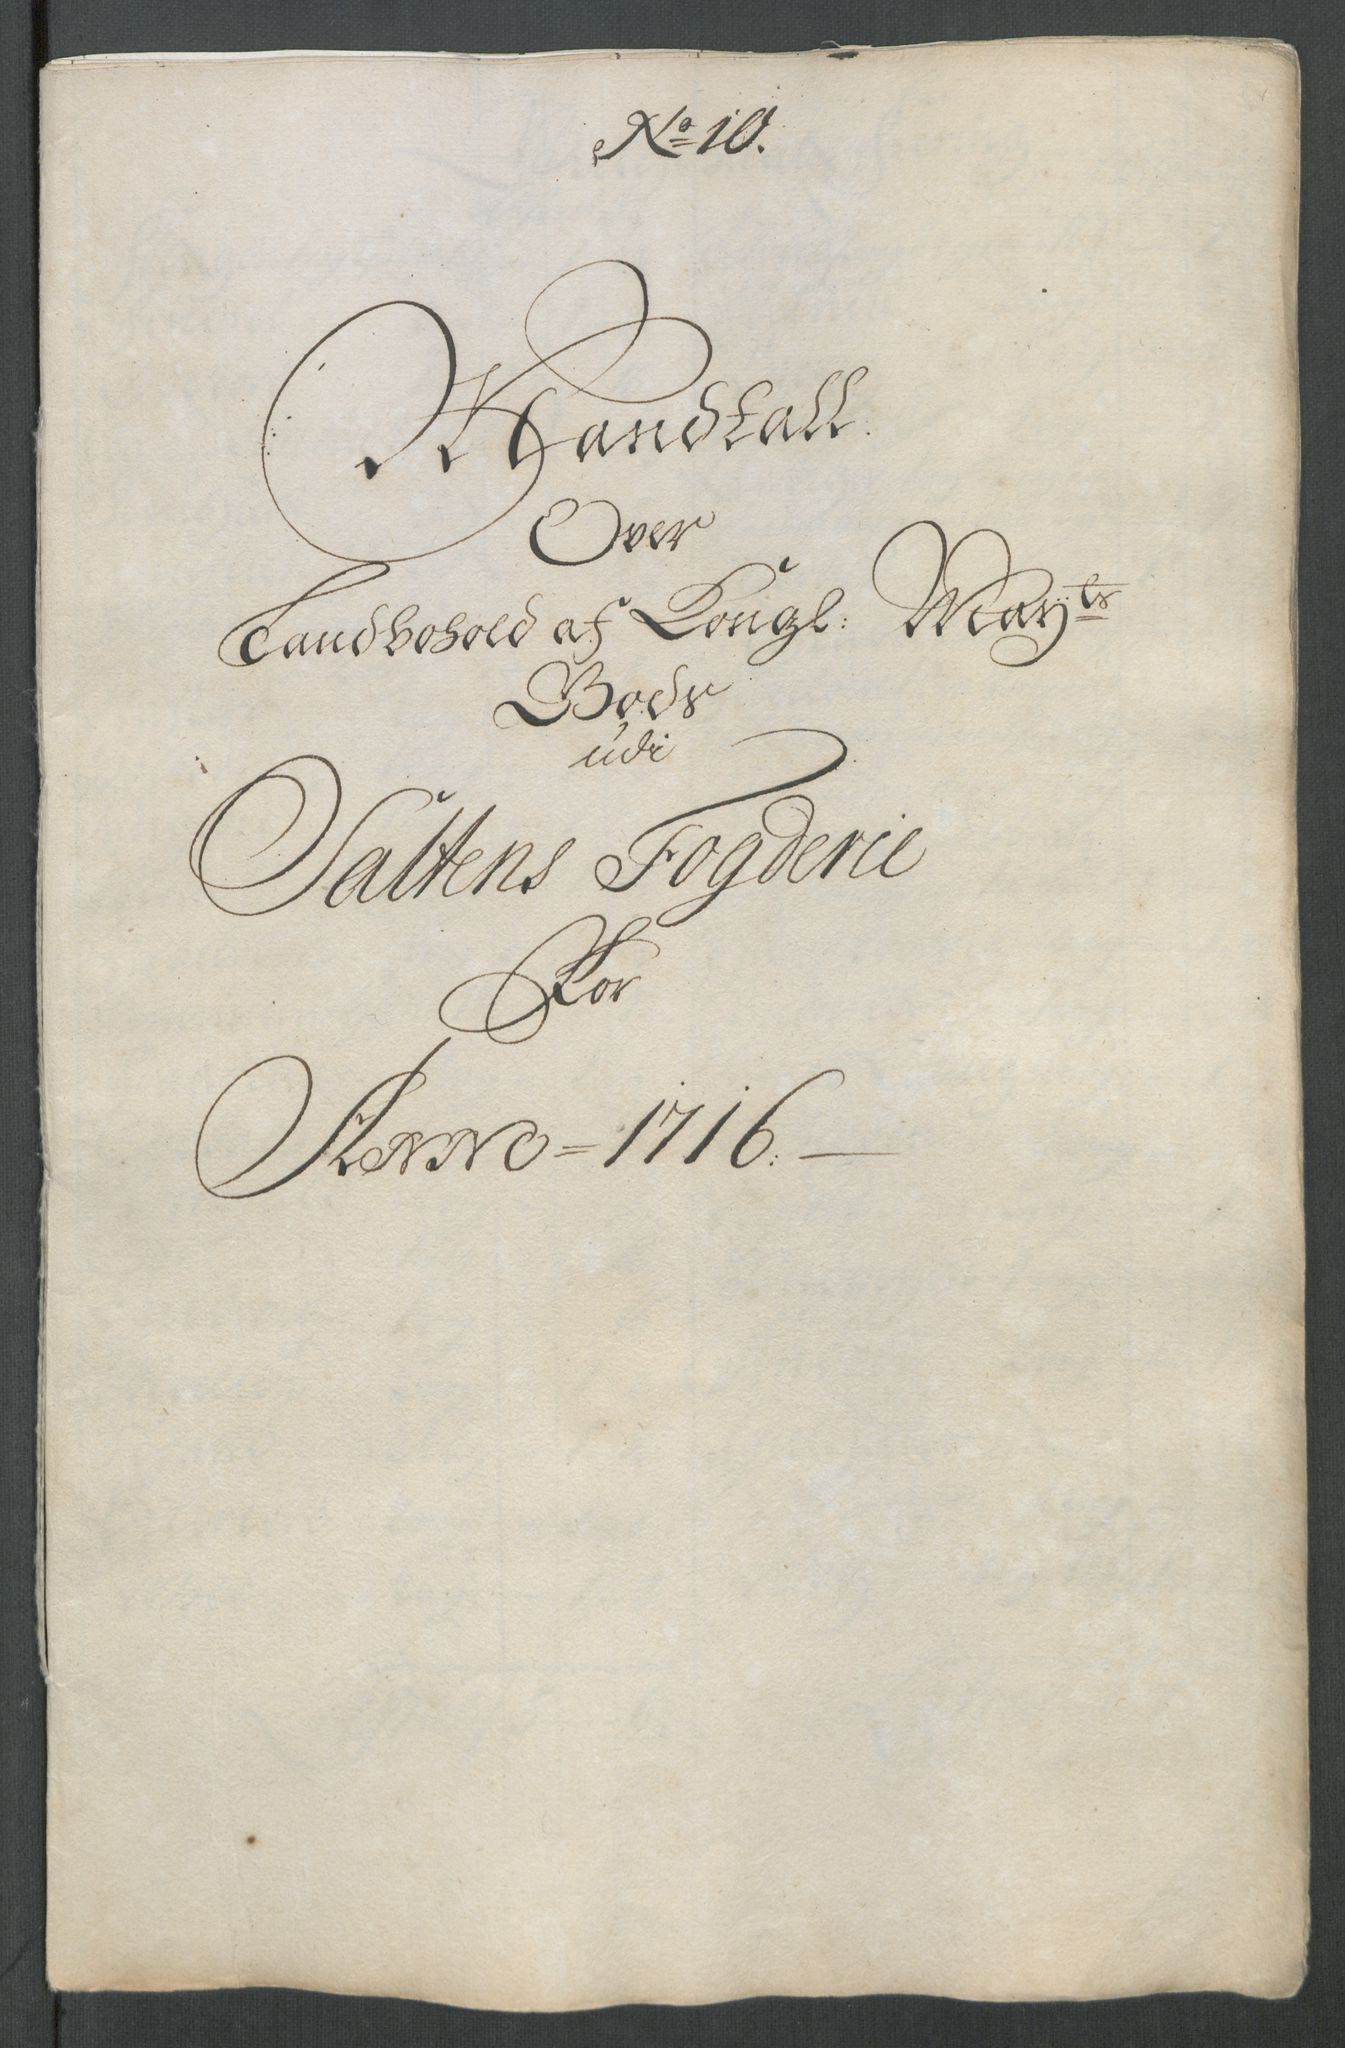 No 10.
Mandtall
Over
Landbohold af Kongl: Mayts
Gods
udi
Saltens Fogderie
For
Anno = 1716. —